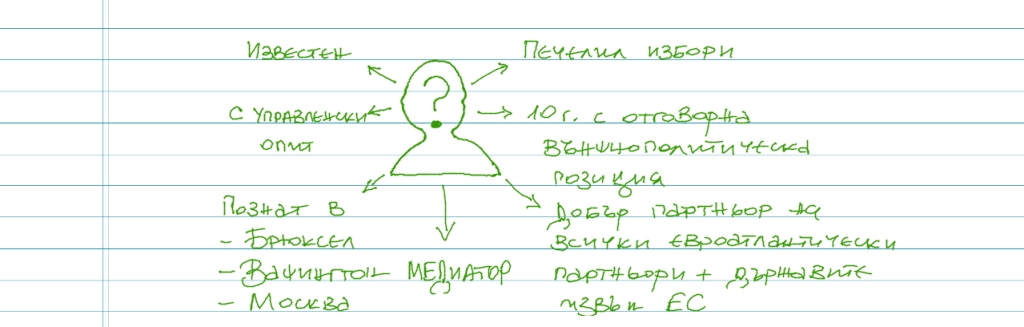 Известен
Печелил избори
?
с управленски
опит
10 г. с отговорна
външнополитическа
позиция
Познат в
- Брюксел
- Вашингтон
- Москва
Медиатор
Добър партньор на
всички евроатлантически
партньори + държавите
извън ЕС